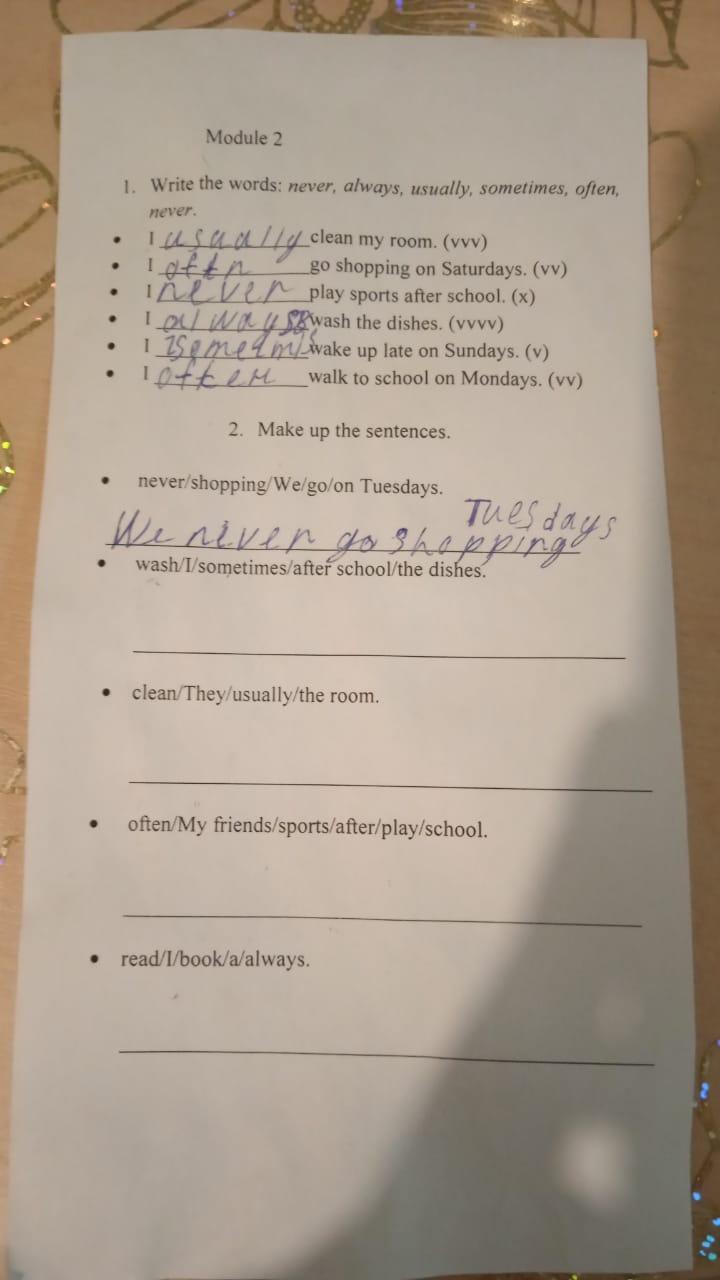 Module 2
1. Write the words: never, always, usually, sometimes, often,
never.
• I usually clean my room. (vvv)
• I oftn go shopping on Saturdays. (vv)
• I never play sports after school. (x)
• I always wash the dishes. (vvvv)
• I wake up late on Sundays. (v)
• I often walk to school on Mondays. (vv)
2. Make up the sentences.
• never/shopping/We/go/on Tuesdays.
Tuesdays
We never go shopping
• wash/I/sometimes/after school/the dishes.
• clean/They/usually/the room.
• often/My friends/sports/after/play/school.
• read/I/book/a/always.